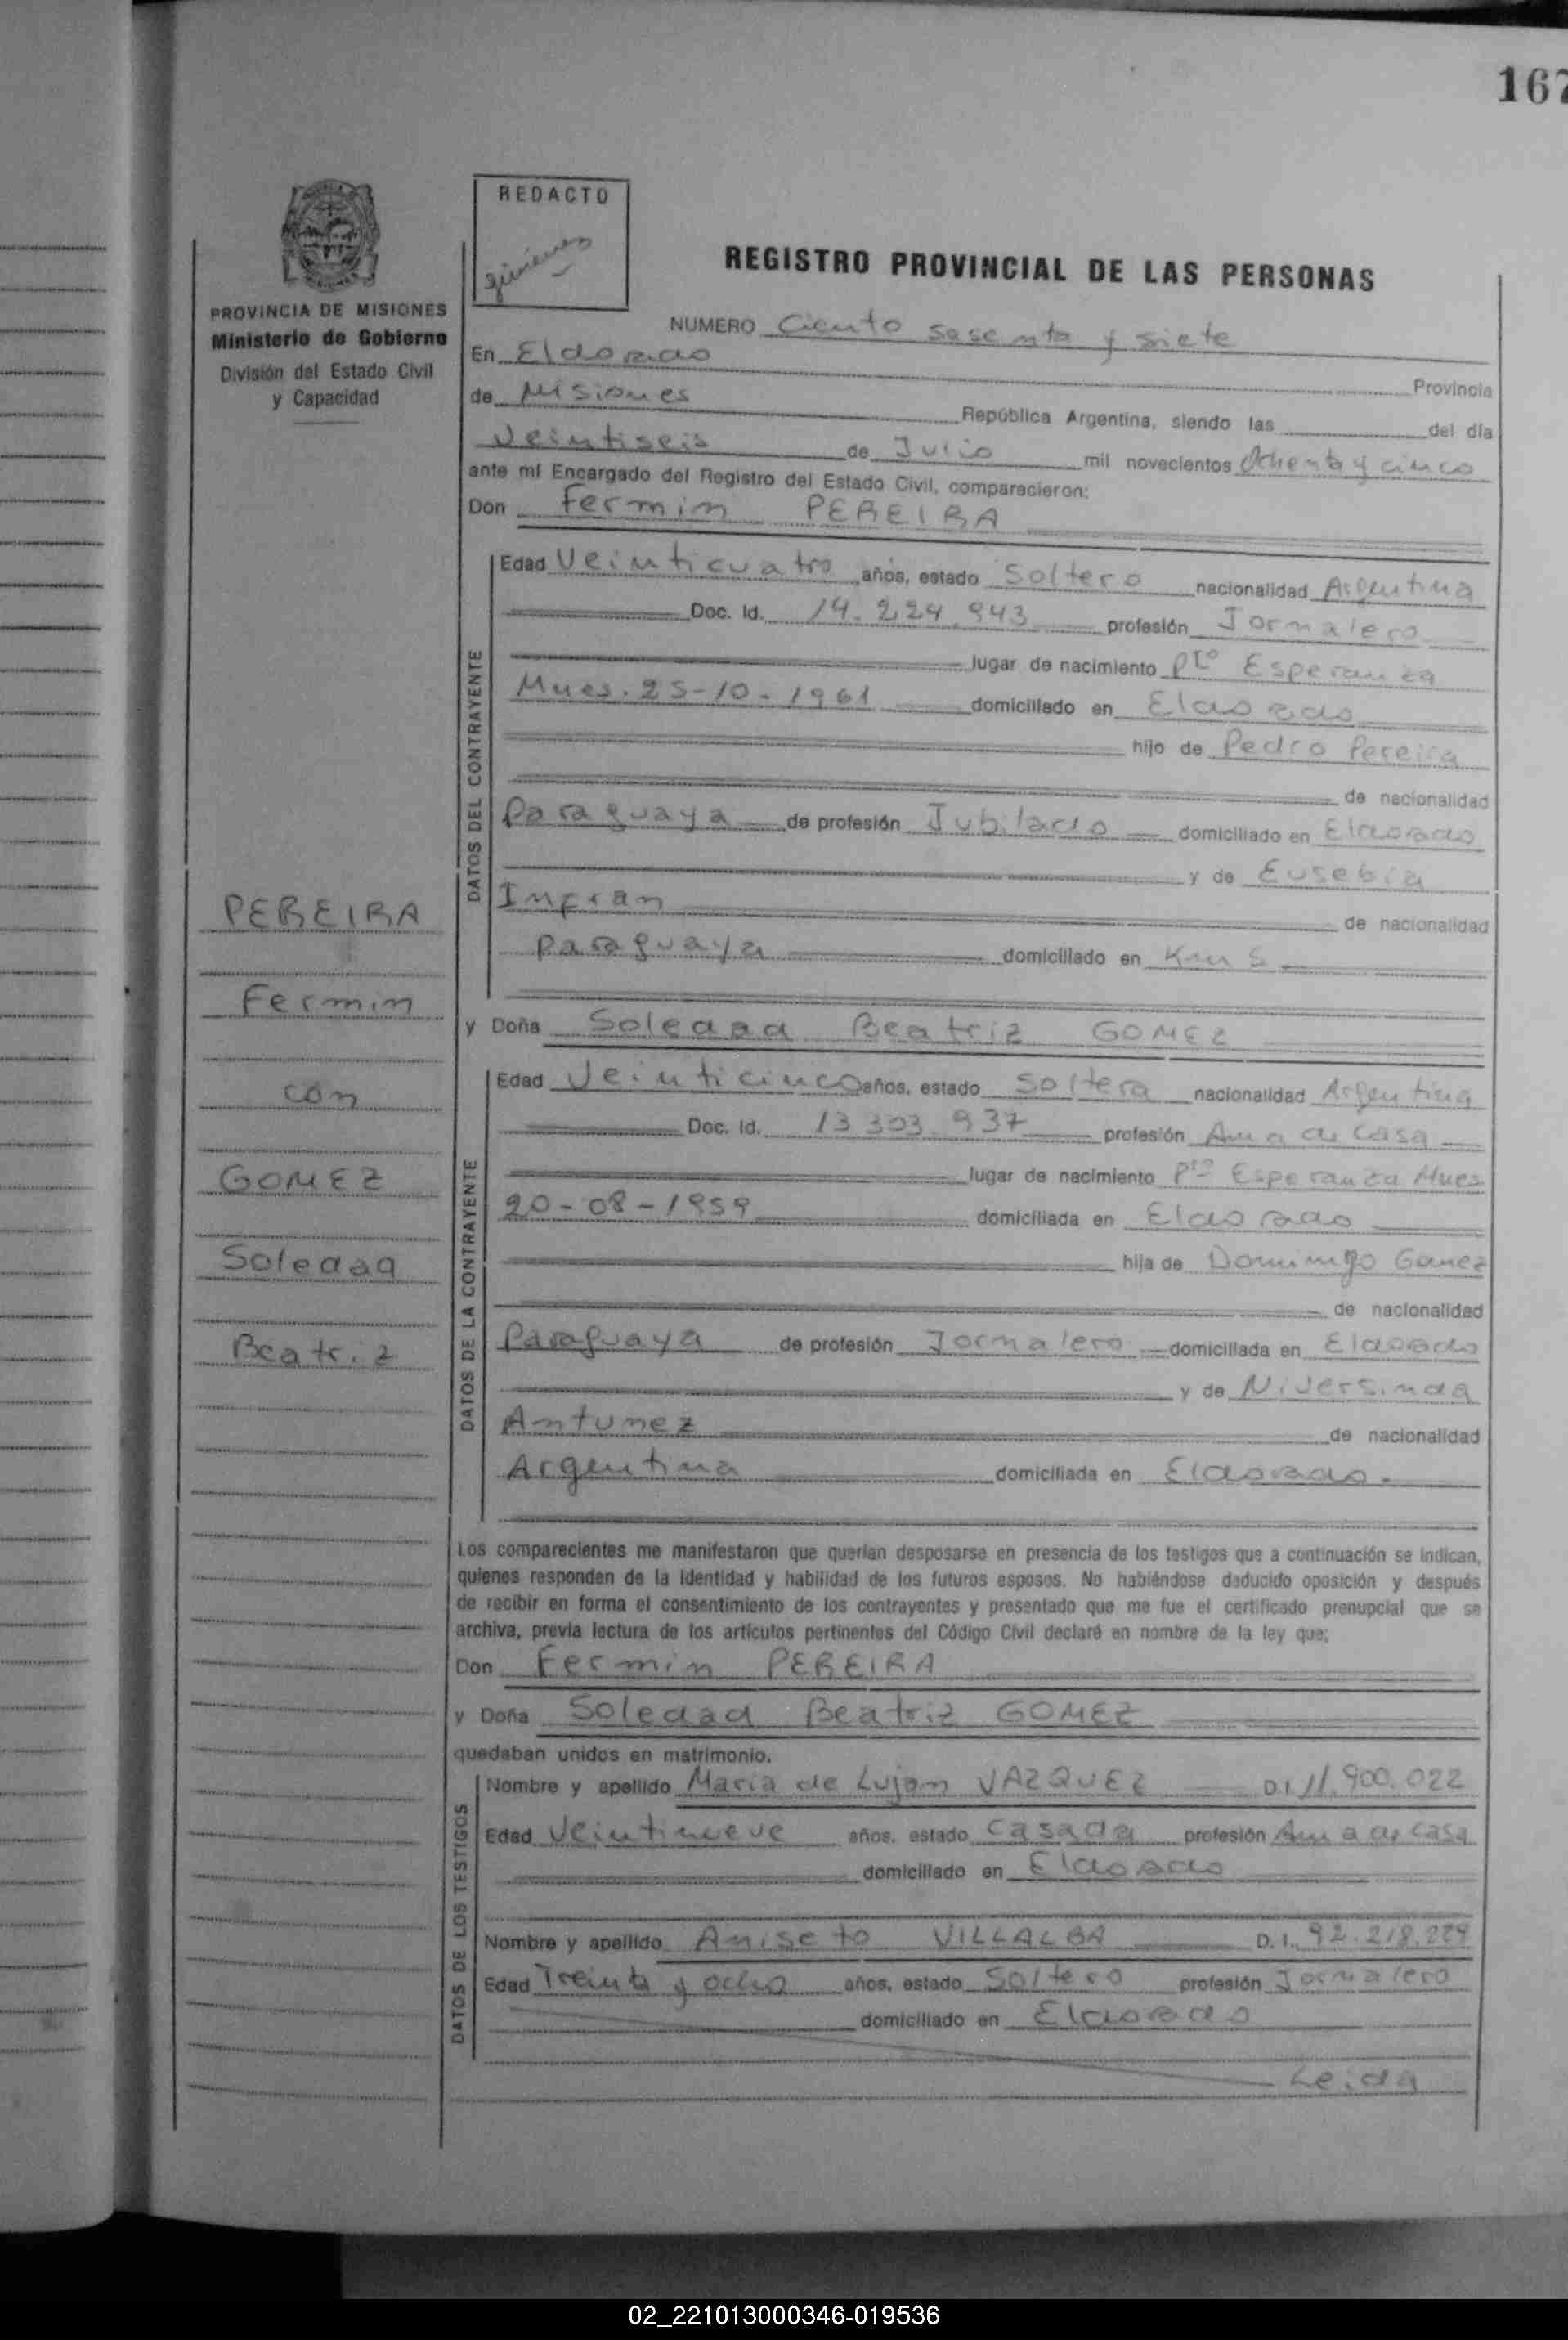 167
REDACTO
REGISTRO PROVINCIAL DE LAS PERSONAS
PROVINCIA DE MISIONES
Ministerio de Gobierno
División del Estado Civil
y Capacidad
NUMERO Ciento sesenta y siete
En Eldorado Provincia
de Misiones República Argentina, siendo las del día
Veintiseis de Julio mil novecientos Ochenta y cinco
ante mí Encargado del Registro del Estado Civil, comparecieron:
Don Fermin PEREIRA
DATOS DEL CONTRAYENTE
Edad Veinticuatro años, estado Soltero nacionalidad Argentina
Doc. Id. 14.224.943 profesión Jornalero
lugar de nacimiento Pto Esperanza
Mnes. 25-10-1961 domiciliado en Eldorado
hijo de Pedro Pereira
de nacionalidad
Paraguaya de profesión Jubilado domiciliado en Eldorado
y de Eusebia
Infran de nacionalidad
Paraguaya domiciliado en Km 5
PEREIRA
Fermin
con
GOMEZ
Soledad
Beatriz
y Doña Soledad Beatriz GOMEZ
DATOS DE LA CONTRAYENTE
Edad Veinticinco años, estado Soltera nacionalidad Argentina
Doc. Id. 13.303.937 profesión Ama de Casa
lugar de nacimiento Pto Esperanza Mnes
20-08-1959 domiciliada en Eldorado
hija de Domingo Gomez
de nacionalidad
Paraguaya de profesión Jornalero domiciliada en Eldorado
y de Niversinda
Antunez de nacionalidad
Argentina domiciliada en Eldorado.
Los comparecientes me manifestaron que querían desposarse en presencia de los testigos que a continuación se indican,
quienes responden de la identidad y habilidad de los futuros esposos. No habiéndose deducido oposición y después
de recibir en forma el consentimiento de los contrayentes y presentado que me fue el certificado prenupcial que se
archiva, previa lectura de los artículos pertinentes del Código Civil declaré en nombre de la ley que;
Don Fermin PEREIRA
y Doña Soledad Beatriz GOMEZ
quedaban unidos en matrimonio.
DATOS DE LOS TESTIGOS
Nombre y apellido Maria de Lujan VAZQUEZ D.I. 11.900.022
Edad Veintinueve años, estado Casada profesión Ama de Casa
domiciliado en Eldorado
Nombre y apellido Aniseto VILLALBA D.I. 92.218.229
Edad Treinta y ocho años, estado Soltero profesión Jornalero
domiciliado en Eldorado
Leida
02_221013000346-019536